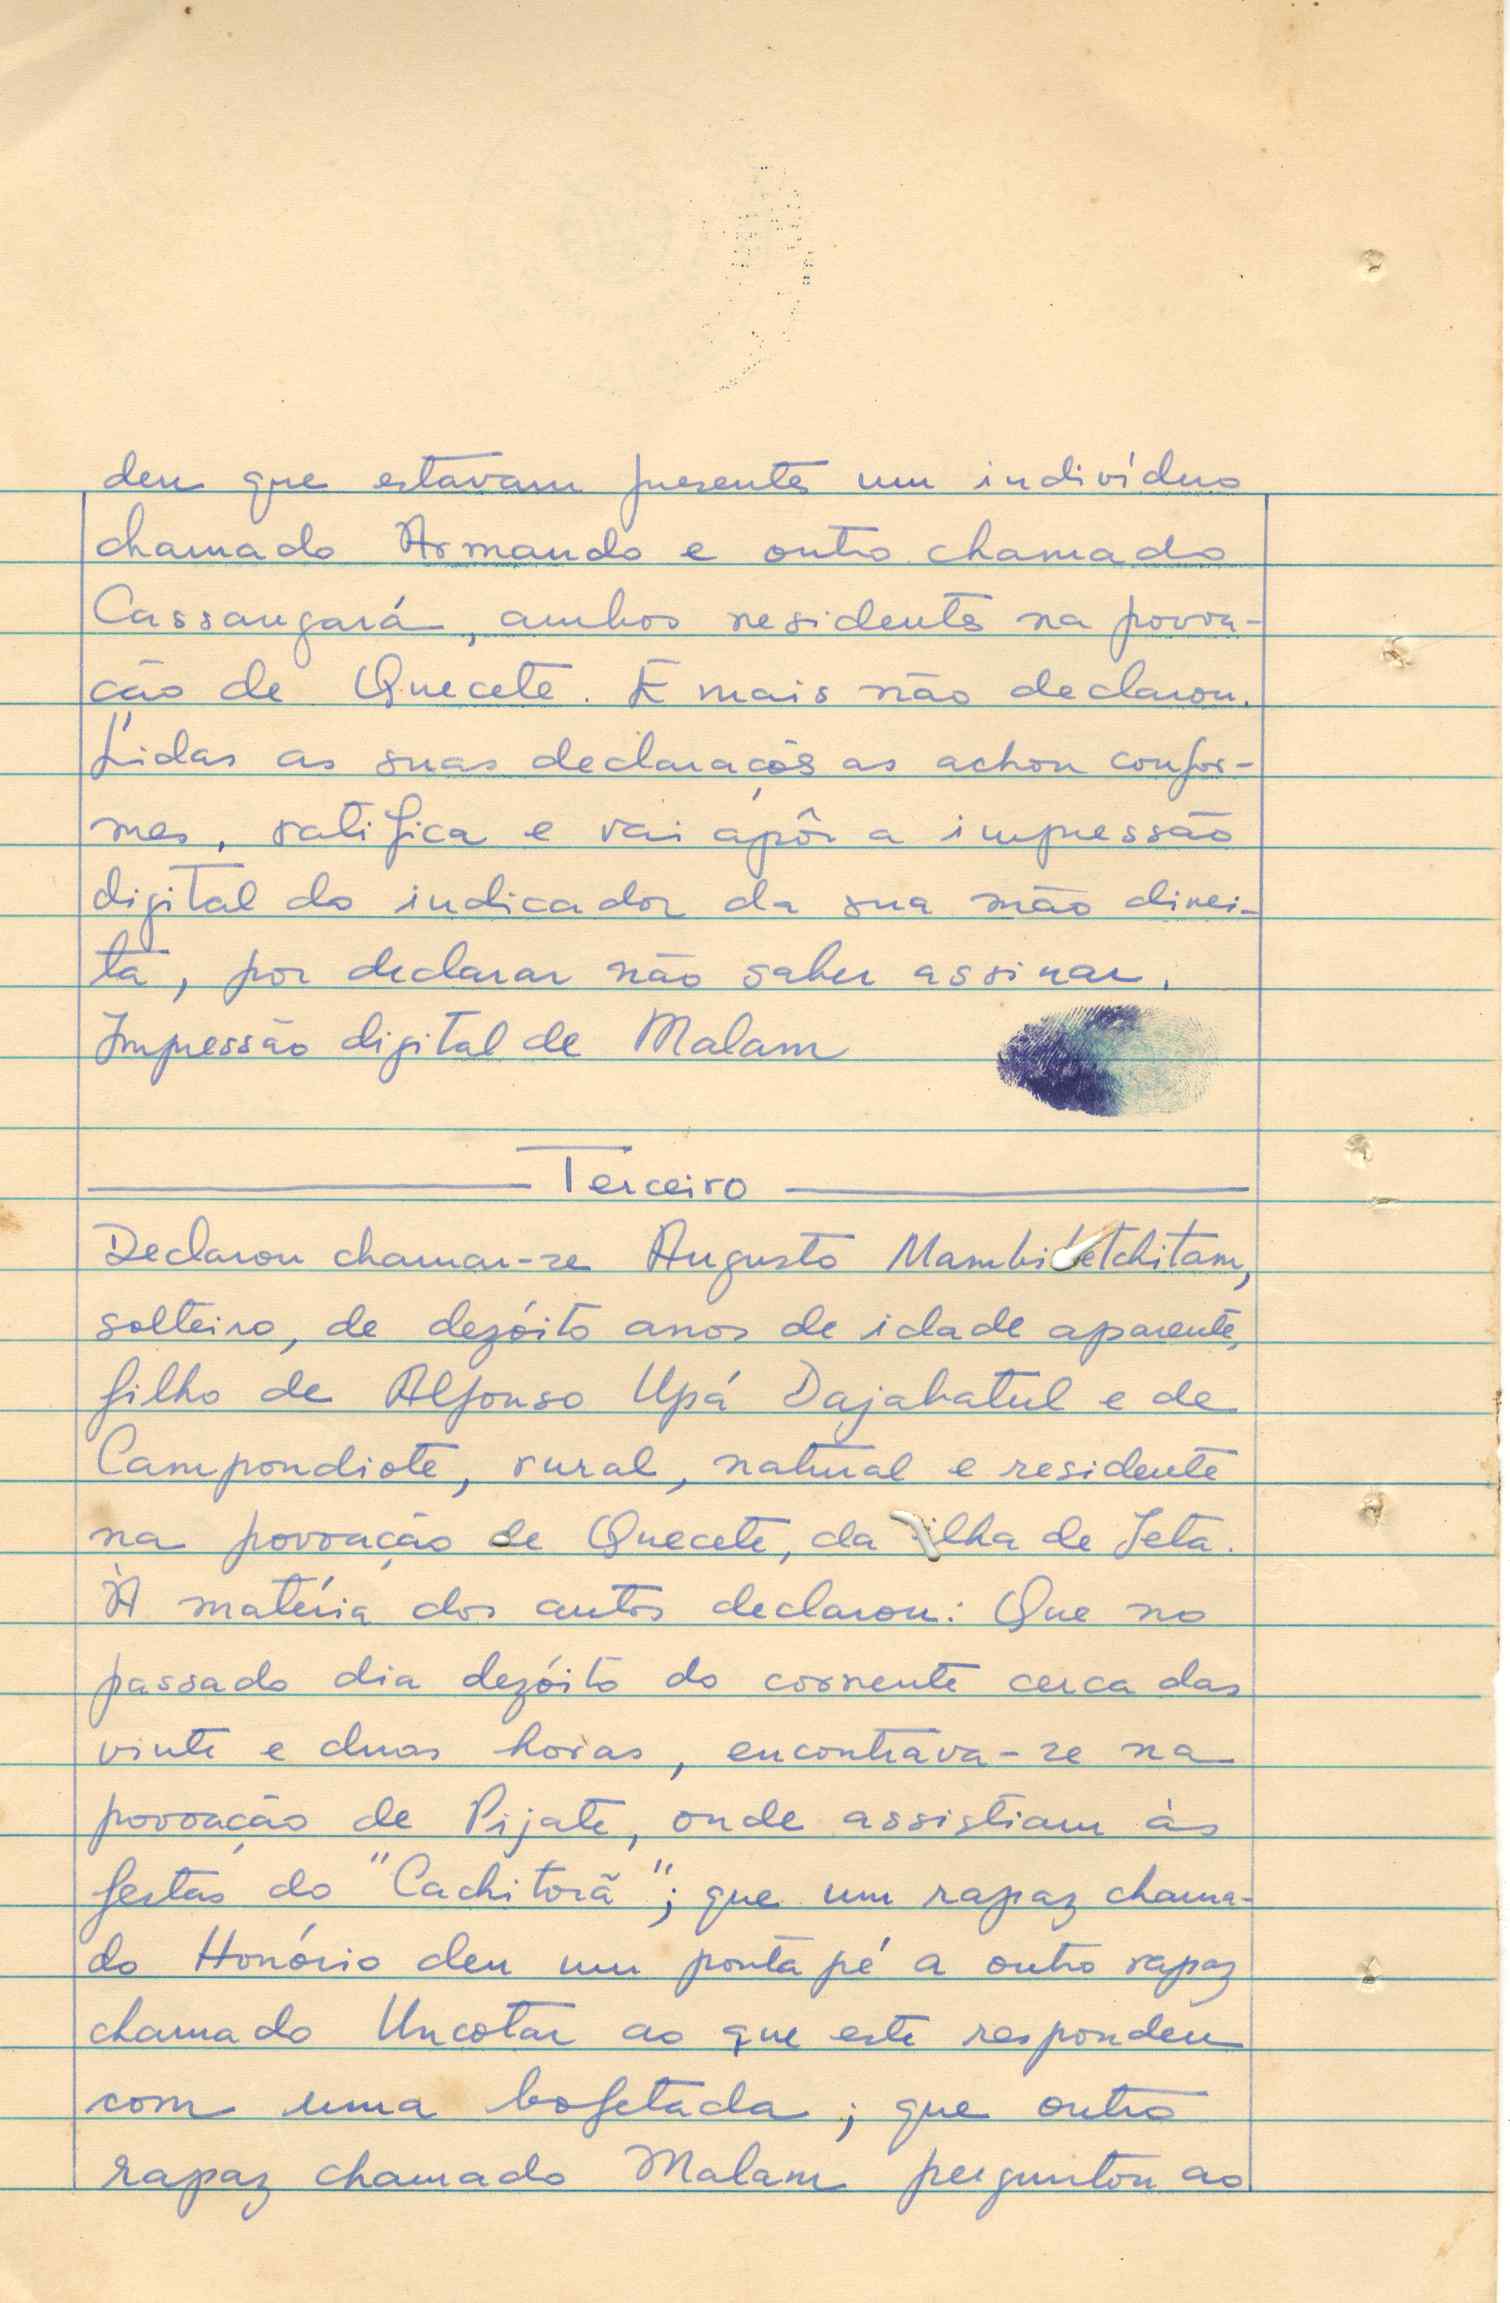 deu que estavam presentes um indivíduo
chamado Armando e outro chamado
Cassangará, ambos residentes na povoa-
ção de Quecete. E mais não declarou.
Lidas as suas declarações as achou confor-
mes, ratifica e vai apôr a impressão
digital do indicador da sua mão direi-
ta, por declarar não saber assinar.
Impressão digital de Malam
Terceiro
Declarou chamar-se Augusto
solteiro, de dezóito anos de idade aparente,
filho de Alfonso Upá Dajabatul e de
Campondiote, rural, natural e residente
na povoação de Quecete, da ilha de Jeta.
À matéria dos autos declarou: Que no
passado dia dezóito do corrente cerca das
vinte e duas horas, encontrava-se na
povoação de Pijate, onde assistiam às
festas do "Cachitorã"; que um rapaz chama-
do Honório deu um ponta pé a outro rapaz
chamado Uncotar ao que este respondeu
com uma bofetada; que outro
rapaz chamado Malam perguntou ao